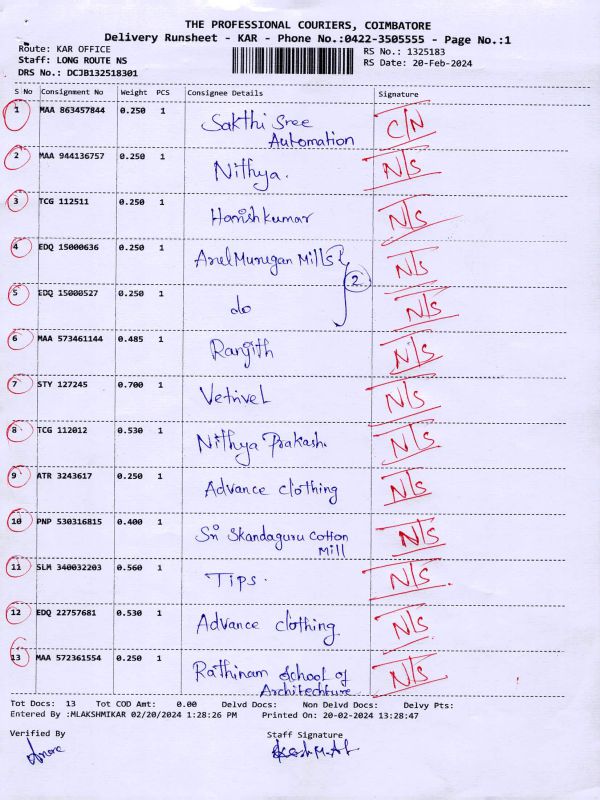 THE PROFESSIONAL COURIERS, COIMBATORE
Delivery Runsheet - KAR - Phone No.:0422-3505555 - Page No.:1
Route: KAR OFFICE RS No.: 1325183
Staff: LONG ROUTE NS RS Date: 20-Feb-2024
DRS No.: DCJB132518301
S No Consignment No Weight PCS Consignee Details Signature
1 MAA 863457844 0.250 1 Sakthi Sree Automation C/N
2 MAA 944136757 0.250 1 Nithya. N/S
3 TCG 112511 0.250 1 Harishkumar N/S
4 EDQ 15000636 0.250 1 Arul Murugan Mills 2 N/S
5 EDQ 15000527 0.250 1 do N/S
6 MAA 573461144 0.485 1 Ranjith N/S
7 STY 127245 0.700 1 Vetrivel N/S
8 TCG 112012 0.530 1 Nithya Prakash. N/S
9 ATR 3243617 0.250 1 Advance clothing N/S
10 PNP 530316815 0.400 1 Sri Skandaguru Cotton Mill N/S
11 SLM 340032203 0.560 1 Tips. N/S
12 EDQ 22757681 0.530 1 Advance clothing N/S
13 MAA 572361554 0.250 1 Rathinam School of Architechture N/S
Tot Docs: 13 Tot COD Amt: 0.00 Delvd Docs: Non Delvd Docs: Delvy Pts:
Entered By :MLAKSHMIKAR 02/20/2024 1:28:26 PM Printed On: 20-02-2024 13:28:47
Verified By Staff Signature